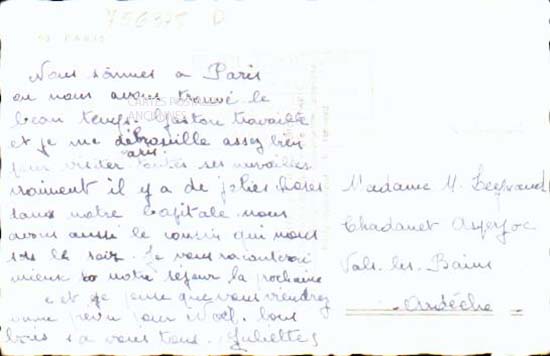 756325 D
PARIS
CARTES POSTALES
ANCIENNES
Nous sommes a Paris
ou nous avons trouvé le
beau temps. Gaston travaille
et je me débrouille assez bien
pour visiter toutes ses
vraiment il y a de jolies choses
dans notre Capitale nous
avons aussi le cousin qui nous
le soir. Je vous raconterai
mieux notre séjour la prochaine
et je pense que vous viendrez
pour
a vous tous. Juliette
Madame M. Legrand
Chadanet
Vals. les. Bains
Ardèche